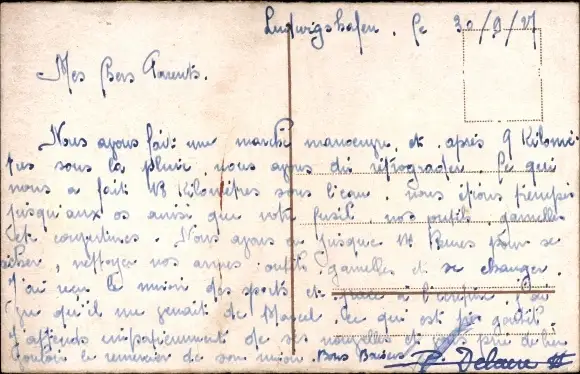 Ludwigshafen, le 30/9/27
Mes Chers Parents.
Nous avons fait une marche manoeuvre et après 9 Kilomè-
tres sous la pluie nous avons dû rétrograder. Ce qui
nous a fait 18 Kilomètres sous l'eau. nous étions trempés
jusqu'aux os ainsi que notre fusil, nos outils, gamelles
et Nous avons eu jusque 14 heures pour se
sécher, nettoyer nos armes outils gamelles et se changer.
J'ai reçu le miroir des sports et grâce à
vu qu'il me venait de Marcel. Ce qui est très gentil
J'attends impatiemment de ses nouvelles et vous prie de bien
vouloir le remercier de son Bons Baisers